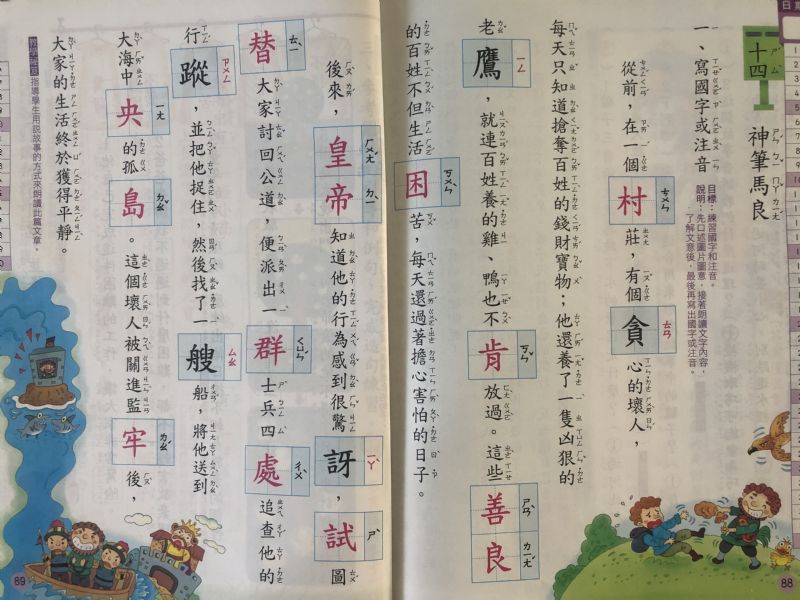 十四 神筆馬良
一、寫國字或注音
目標：練習國字和注音。
說明：先口述圖片圖意，接著朗讀文字內容，
了解文意後，最後再寫出國字或注音。
從前，在一個村莊，有個貪心的壞人，
每天只知道搶奪百姓的錢財寶物；他還養了一隻凶狠的
老鷹，就連百姓養的雞、鴨也不肯放過。這些善良
的百姓不但生活困苦，每天還過著擔心害怕的日子。
後來，皇帝知道他的行為感到很驚訝，試圖
替大家討回公道，便派出一群士兵四處追查他的
行蹤，並把他捉住，然後找了一艘船，將他送到
大海中央的孤島。這個壞人被關進監牢後，
大家的生活終於獲得平靜。
指導學生用說故事的方式來朗讀此篇文章。
89
88